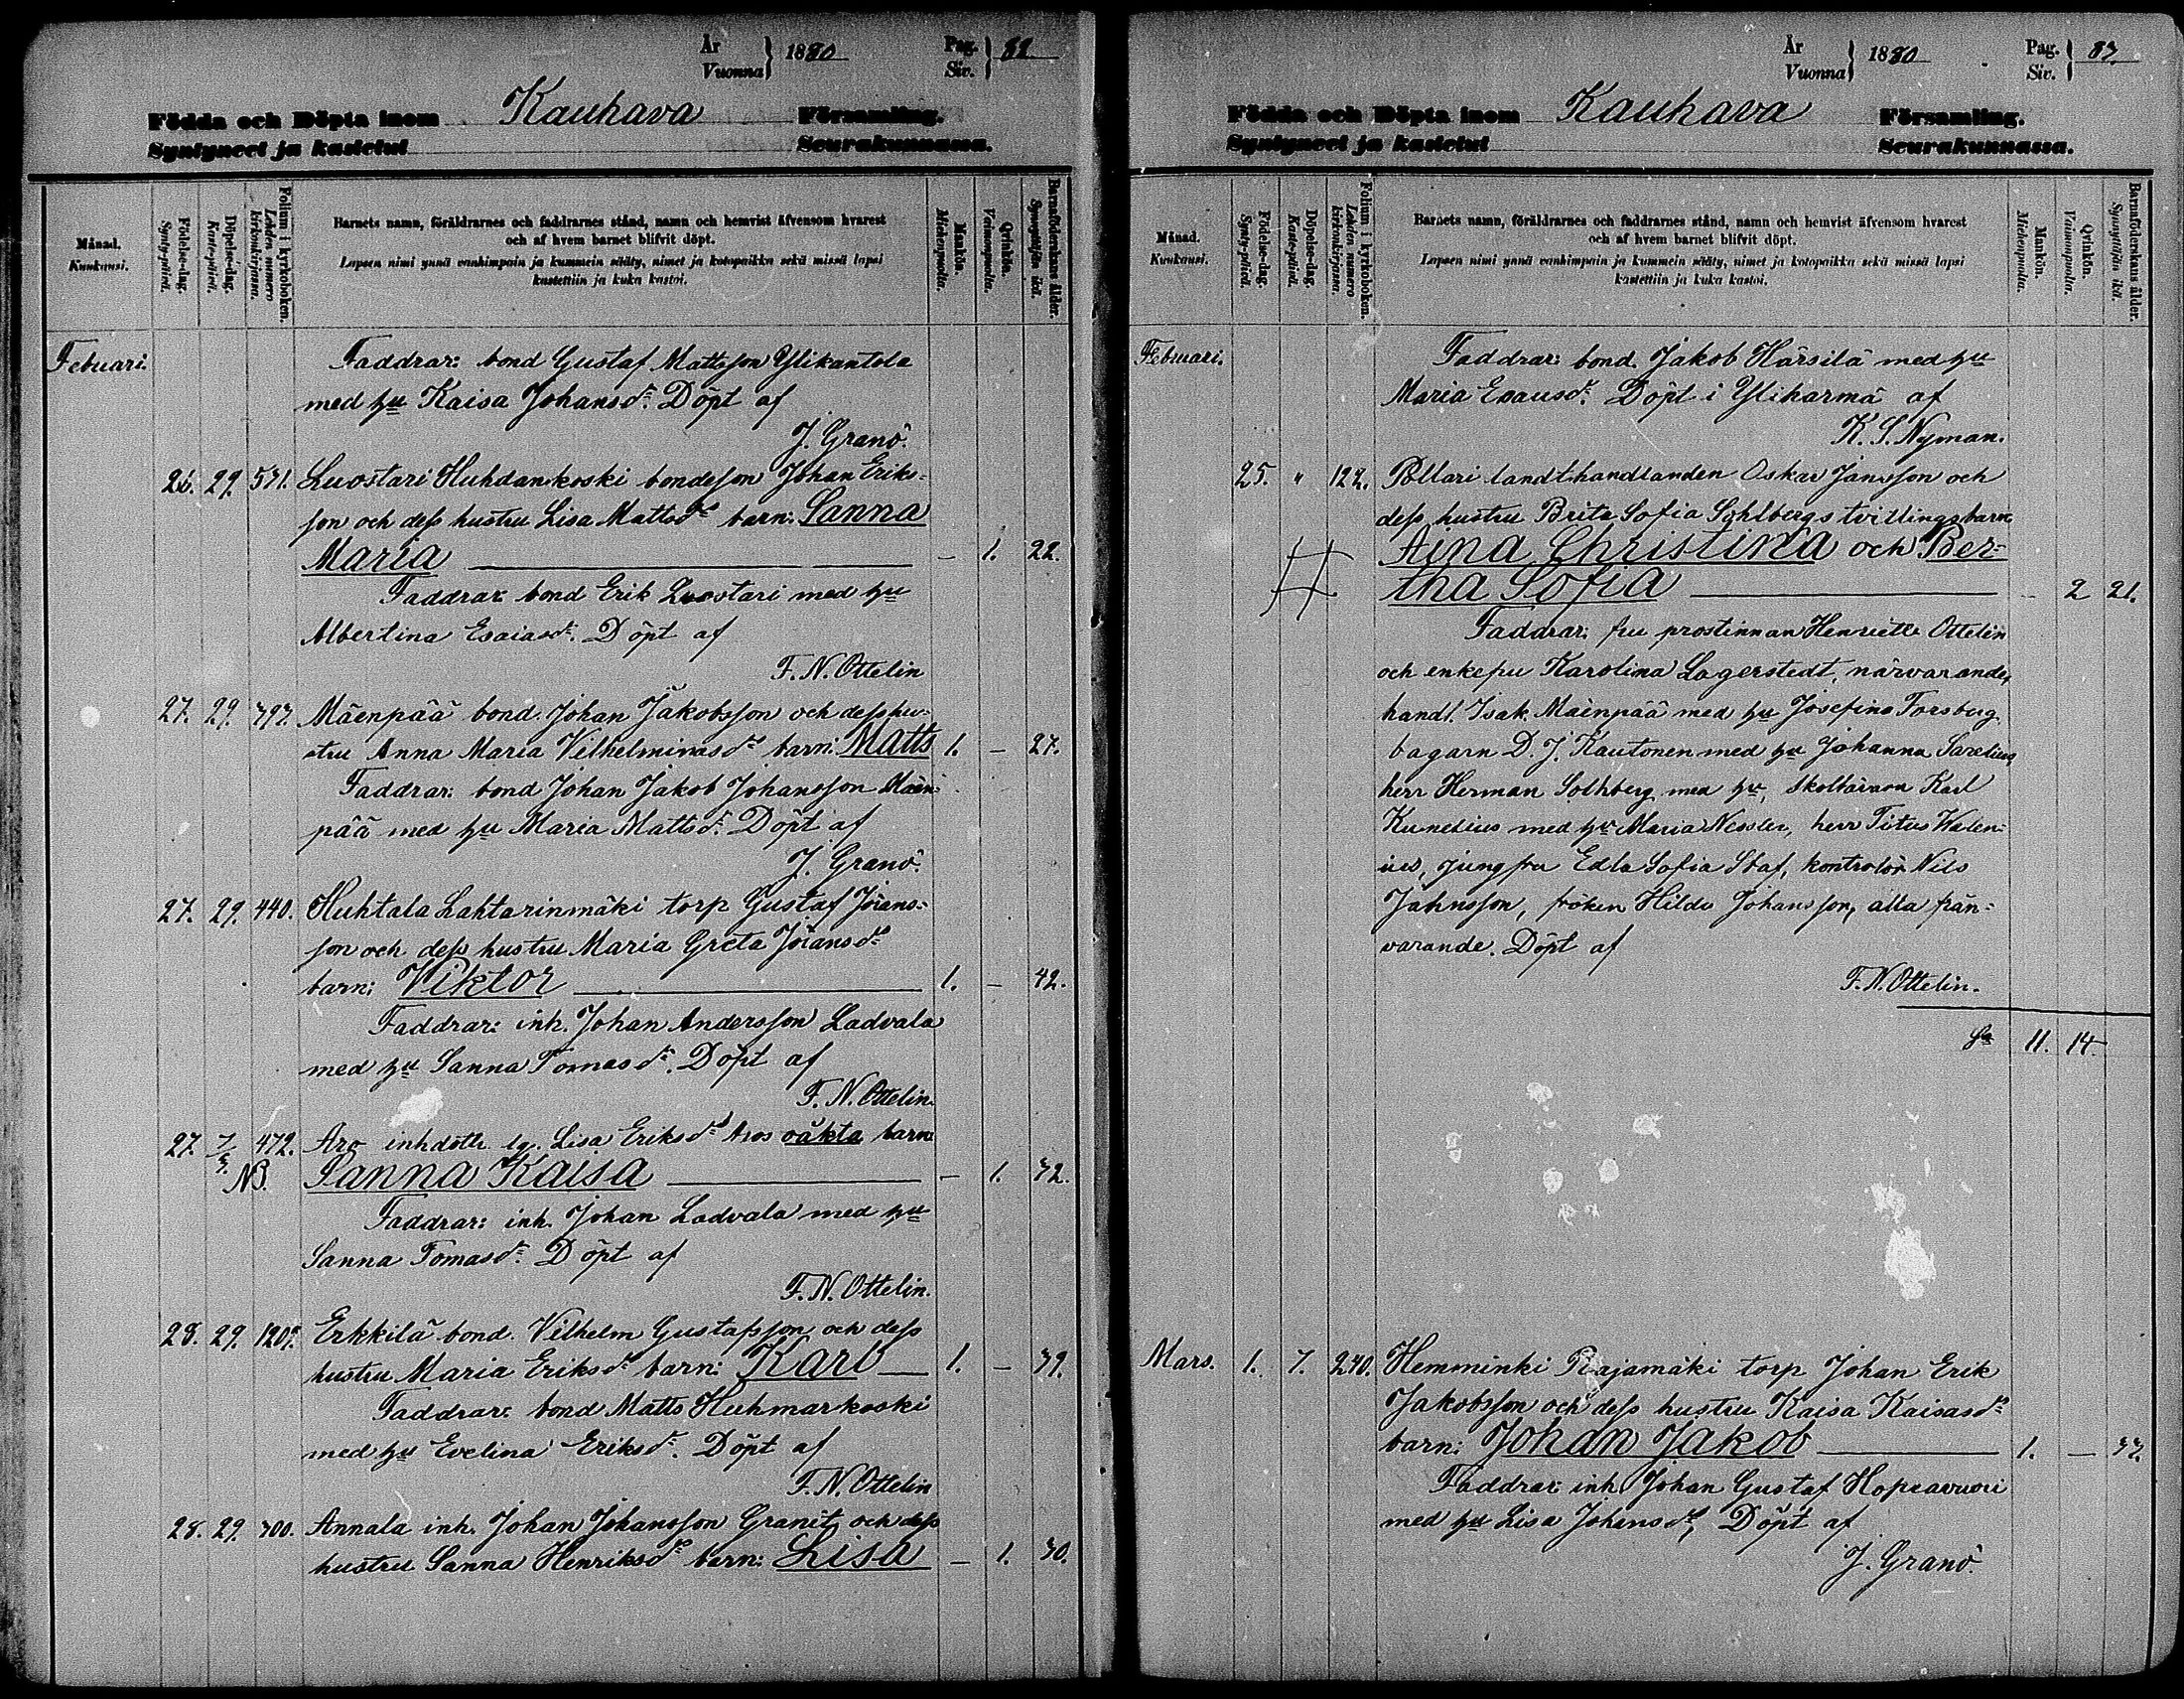 År
Vuonna } 1880
Pag.
Siv. } 82.
Födda och Döpta inom Kauhava Församling.
Syntyneet ja kastetut Seurakunnassa.
Månad.
Kuukausi.
Födelse-dag.
Synty-päivä.
Döpelse-dag.
Kaste-päivä.
Folium i kyrkoboken.
Lehden numero kirkonkirjassa.
Barnets namn, föräldrarnes och faddrarnes stånd, namn och hemvist äfvensom hvarest
och af hvem barnet blifvit döpt.
Lapsen nimi ynnä vanhimpain ja kummein sääty, nimet ja kotopaikka sekä missä lapsi
kastettiin ja kuka kastoi.
Mankön.
Miehenpuolia.
Qvinkön.
Vaimonpuolia.
Barnaföderskans ålder.
Synnyttäjän ikä.
Febuari. Faddrar: bond Gustaf Mattsson Ylikantola
med hu Kaisa Johansdr. Döpt af
J. Granö.
26. 29. 571. Luostari Huhdankoski bondeson Johan Eriks-
son och dess hustru Lisa Mattsdrs barn: Sanna
Maria — 1. 22.
Faddrar: bond Erik Luostari med hu
Albertina Esaiasdr. Döpt af
F. N. Ottelin
27. 29. 797. Mäenpää bond. Johan Jakobsson och dess hu-
stru Anna Maria Vilhelminasdrs barn: Matts 1. — 27.
Faddrar: bond Johan Jakob Johansson Mäen-
pää med hu Maria Mattsdr. Döpt af
J. Granö.
27. 29. 440. Huhtala Lahtarinmäki torp Gustaf Jöians-
son och dess hustru Maria Greta Jöiansdrs
barn: Viktor 1. — 42.
Faddrar: inh. Johan Andersson Ladvala
med hu Sanna Tomasdr. Döpt af
F. N. Ottelin.
27. 7/3. 472. Aro inhdottr lg. Lisa Eriksdrs Aros oäkta barn
NB. Sanna Kaisa — 1. 32.
Faddrar: inh. Johan Ladvala med hu
Sanna Tomasdr. Döpt af
F. N. Ottelin.
28. 29. 1209. Erkkilä bond. Vilhelm Gustafsson och dess
hustru Maria Eriksdrs barn: Karl 1. — 39.
Faddrar: bond Matts Huhmarkoski
med hu Evelina Eriksdr. Döpt af
F. N. Ottelin
28. 29. 700. Annala inh. Johan Johansson Granit och dess
hustru Sanna Henriksdrs barn: Lisa — 1. 30.
År
Vuonna } 1880
Pag.
Siv. } 83.
Födda och Döpta inom Kauhava Församling.
Syntyneet ja kastetut Seurakunnassa.
Månad.
Kuukausi.
Födelse-dag.
Synty-päivä.
Döpelse-dag.
Kaste-päivä.
Folium i kyrkoboken.
Lehden numero kirkonkirjassa.
Barnets namn, föräldrarnes och faddrarnes stånd, namn och hemvist äfvensom hvarest
och af hvem barnet blifvit döpt.
Lapsen nimi ynnä vanhimpain ja kummein sääty, nimet ja kotopaikka sekä missä lapsi
kastettiin ja kuka kastoi.
Mankön.
Miehenpuolia.
Qvinkön.
Vaimonpuolia.
Barnaföderskans ålder.
Synnyttäjän ikä.
Februari. Faddrar: bond. Jakob Härsilä med hu
Maria Esausdr. Döpt i Ylihärmä af
K. S. Nyman.
25. " 122. Pollari landthandlanden Oskar Jansson och
dess hustru Brita Sofia Sohlbergs tvillingsbarn
Aina Christina och Ber-
tha Sofia — 2 21.
Faddrar: fru prostinnan Henriette Ottelin
och enkefru Karolina Lagerstedt, närvarande,
handl. Isak Mäenpää med hu Josefina Forsberg
bagarn D. J. Kautonen med hu Johanna Sarelius,
herr Herman Sohlberg med hu, Skollärarn Karl
Kunelius med hu Maria Nessler, herr Titus Walen-
ius, jungfru Edla Sofia Staf, kontrolör Nils
Jahnsson, fröken Hilda Johansson, alla från-
varande. Döpt af
F. N. Ottelin.
Sa 11. 14.
Mars. 1. 7. 240. Hemminki Rajamäki torp Johan Erik
Jakobsson och dess hustru Kaisa Kaisasdrs
barn: Johan Jakob 1. — 33.
Faddrar: inh. Johan Gustaf Hopeavuori
med hu Lisa Johansdr, Döpt af
J. Granö.